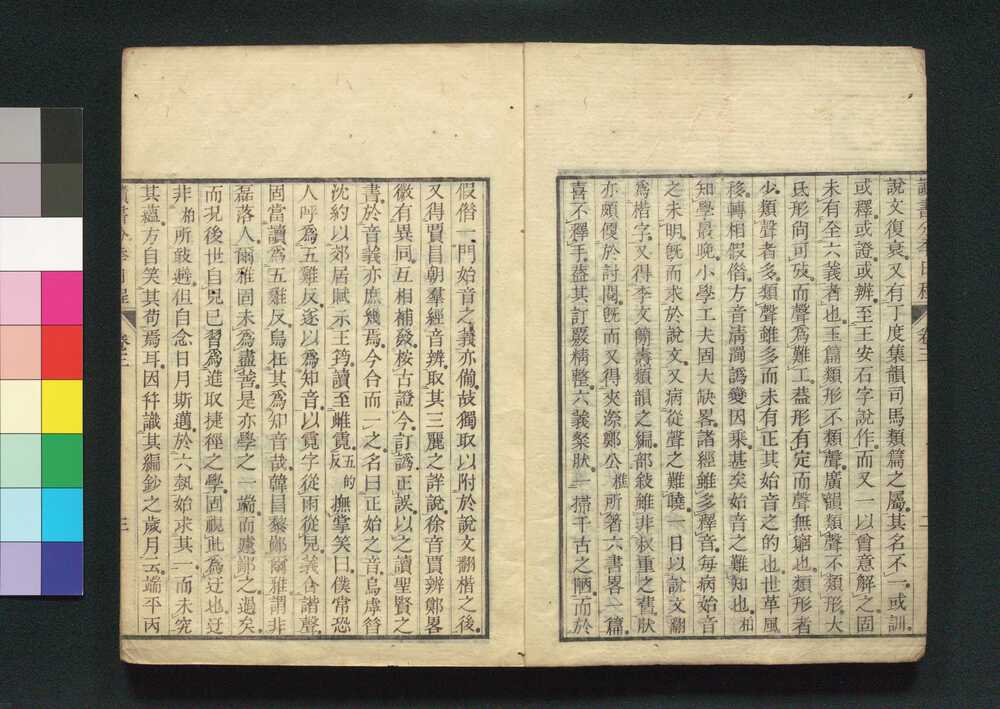 說文復衷又有丁度集韻司馬類篇之屬其名不一或訓
或釋或證或辨至王安石字說作而又一以會意解之固
未有全六義者也玉篇類形不類聲廣韻類聲不類形大
氐形尚可攷而聲爲難工葢形有定而聲無窮也類形者
少類聲者多類聲雖多而未有正其始音之的也世革風
移轉相假俗方音淸濁譌變因乘甚矣始音之難知也柏
知學最晚小學工夫固大缺畧諸經雖多釋音每病始音
之未明旣而求於說文又病從聲之難曉一日以說文翻
爲楷字又得李文簡燾類韻之編部敍雖非叔重之舊狀
亦頗便於討閱旣而又得夾漈鄭公樵所著六書畧一篇
喜不釋手葢其訂嚴精整六義粲狀一掃千古之陋而於
假俗一門始音之義亦備故獨取以附於說文翻楷之後
又得賈昌朝羣經音辨取其三麗之詳說徐音賈辨鄭畧
微有異同互相補發桉古證今訂譌正誤以之讀聖賢之
書於音義亦庶幾焉今合而一之名曰正始之音烏虖昝
沈約以郊居賦示王筠讀至雌霓五的反撫掌笑曰僕常恐
人呼爲五雞反遂以爲知音以霓字從雨從兒義合諧聲
固當讀爲五雞反烏在其爲知音哉韓昌黎鄙爾雅謂非
磊落人爾雅固未爲盡善是亦學之一端而遽鄙之過矣
而況後世自兒已習爲進取捷徑之學固視此爲迂也迂
非柏所敢避但自念日月斯邁於六埶始求其一而未究
其蘊方自笑其苟焉耳因幷識其編鈔之歲月云端平丙
讀書分年日程 卷三 三